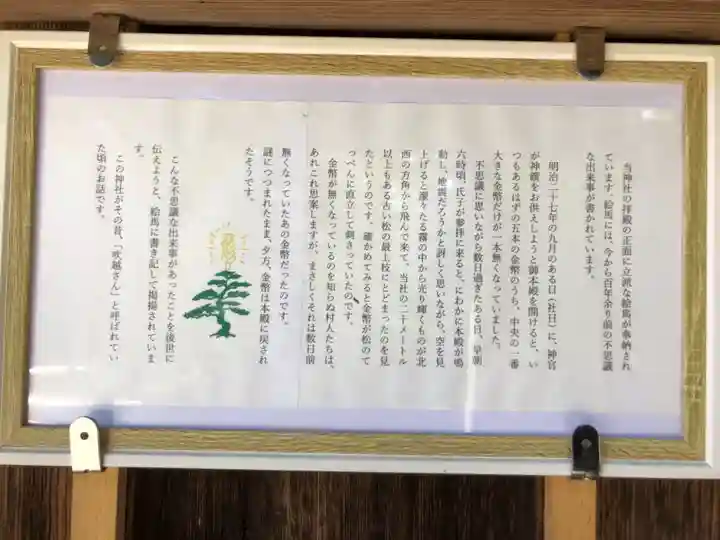 当神社の拝殿の正面に立派な絵馬が奉納され
ています。絵馬には、今から百年余り前の不思議
な出来事が書かれています。
明治二十七年の九月のある日(社日)に、神官
が神饌をお供えしようと御本殿を開けると、い
つもあるはずの五本の金幣のうち、中央の一番
大きな金幣だけが一本無くなっていました。
不思議に思いながら数日過ぎたある日、早朝
六時頃、氏子が参拝に来ると、にわかに本殿が鳴
動し、地震だろうかと訝しく思いながら、空を見
上げると濛々たる霧の中から光り輝くものが北
西の方角から飛んで来て、当社の二十メートル
以上もある古い松の最上枝にとどまったのを見
たというのです。確かめてみると金幣が松のて
っぺんに直立して刺さっていたのです。
金幣が無くなっているのを知らぬ村人たちは、
あれこれ思案しますが、まさしくそれは数日前
無くなっていたあの金幣だったのです。
謎につつまれたまま、夕方、金幣は本殿に戻され
たそうです。
こんな不思議な出来事があったことを後世に
伝えようと、絵馬に書き記して掲揚されていま
す。
この神社がその昔、「吹越さん」と呼ばれてい
た頃のお話です。